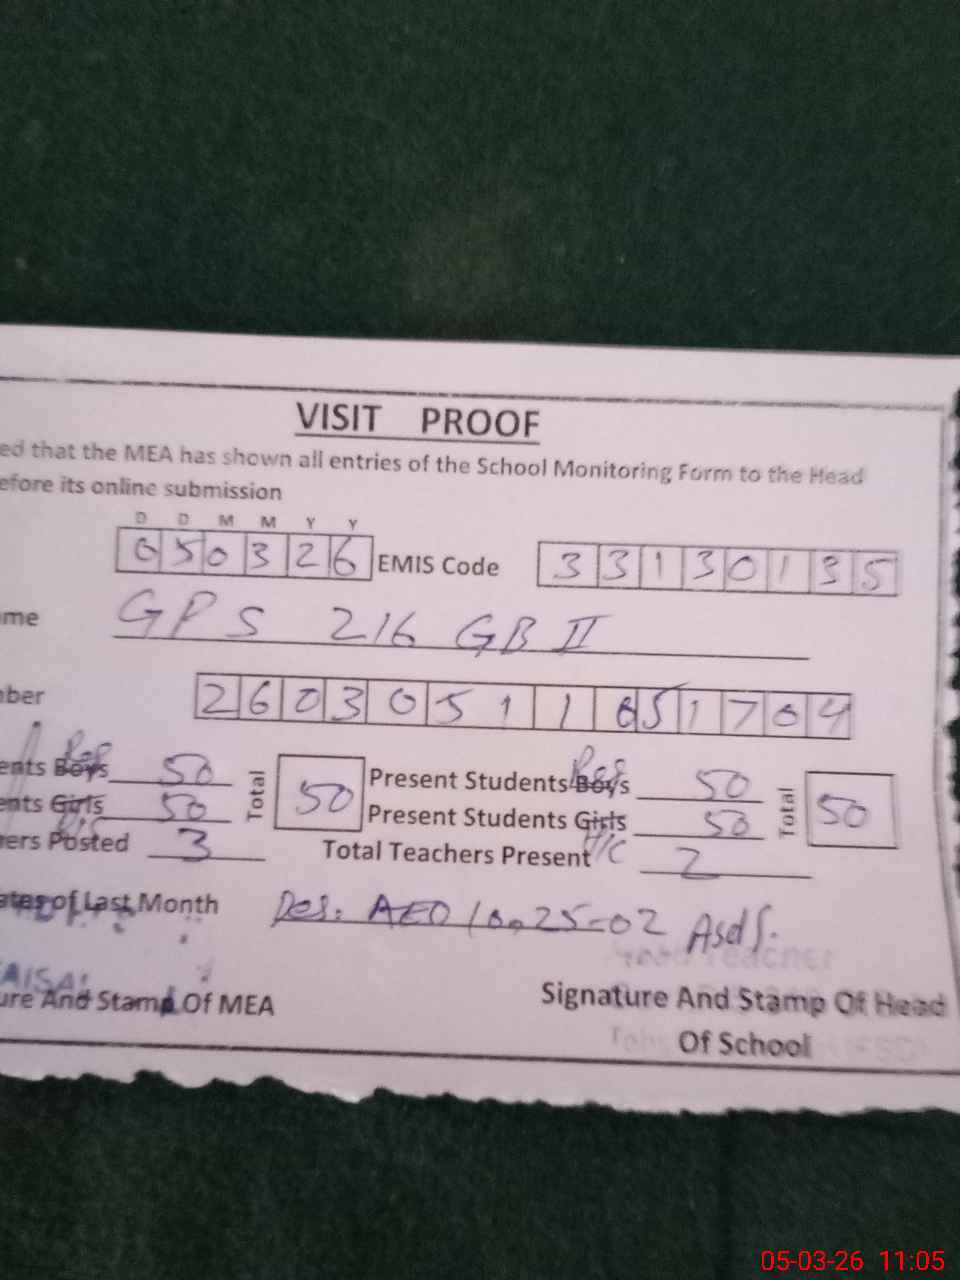 VISIT PROOF
ed that the MEA has shown all entries of the School Monitoring Form to the Head
efore its online submission
D D M M Y Y
050326 EMIS Code 33130135
me GPS 216 GB II
ber 26030511051704
ents Boys Reg 50 Total 50 Present Students Boys Reg 50 Total 50
ents Girls 50 Present Students Girls 50
ers Posted 3 Total Teachers Present H/C 2
ates of Last Month Des: AEO 25-02
AISAL
ure And Stamp Of MEA Signature And Stamp Of Head
Of School
05-03-26 11:05